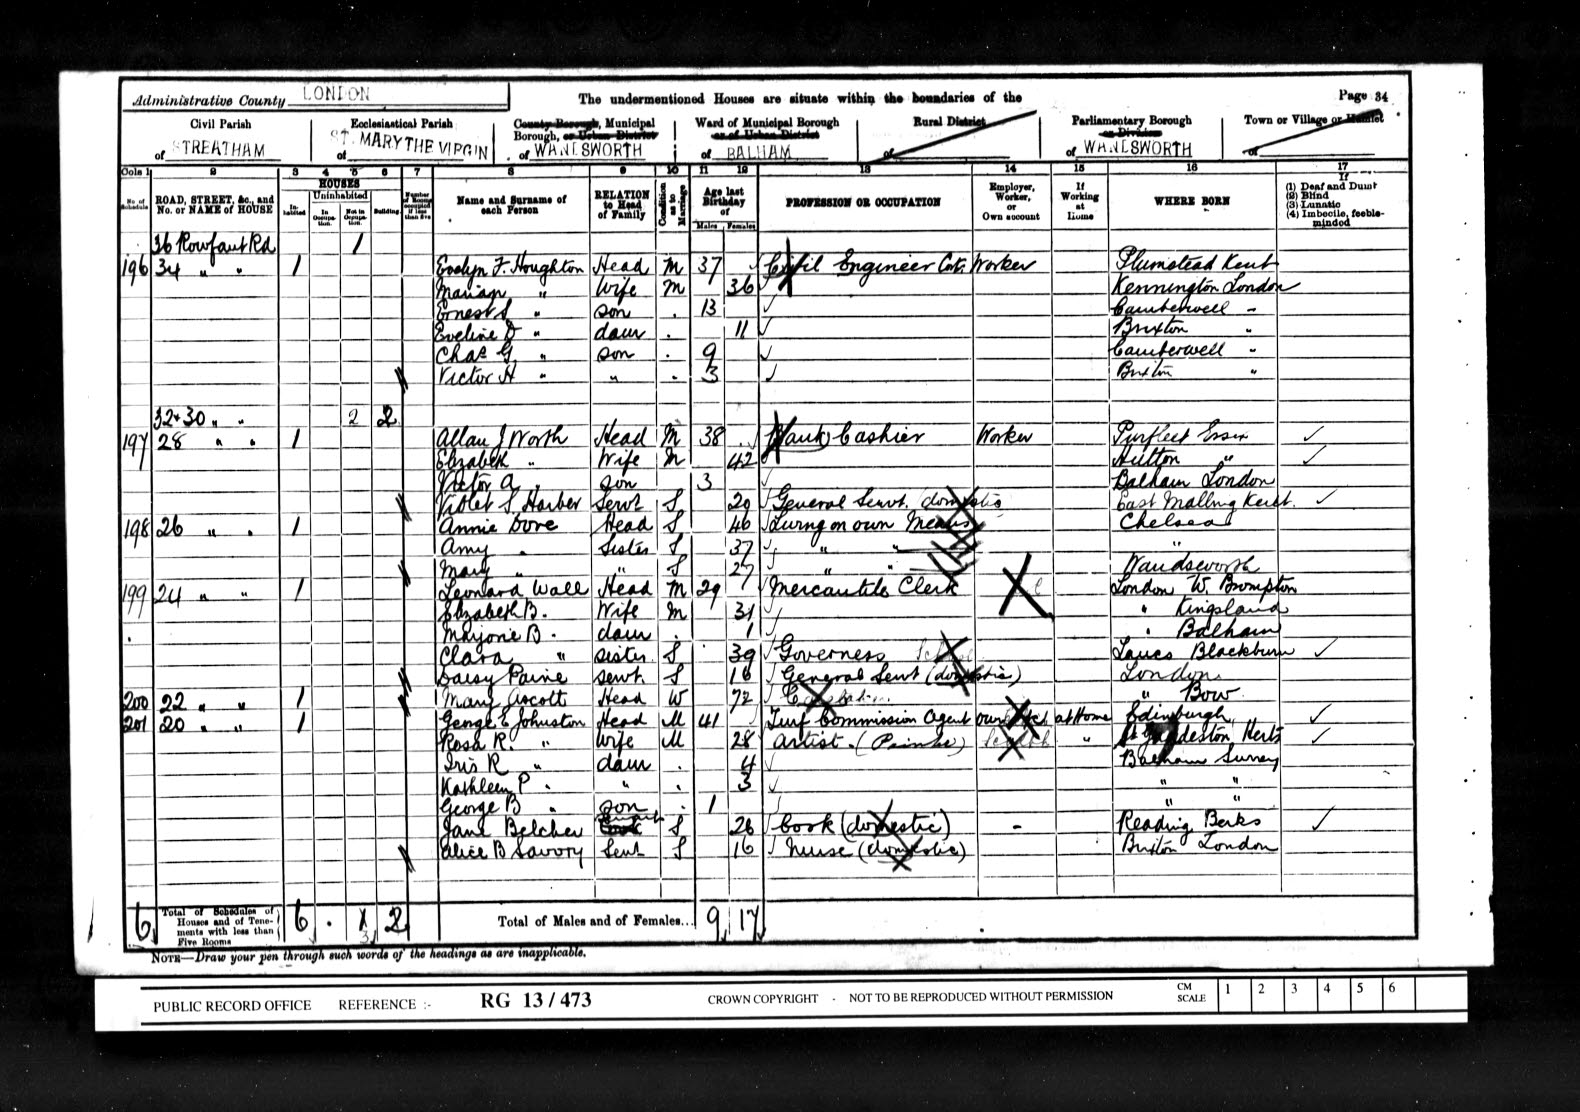 Administrative County LONDON
The undermentioned Houses are situate within the boundaries of the
Page 34
Civil Parish of STREATHAM
Ecclesiastical Parish of ST. MARY THE VIRGIN
County Borough, Municipal Borough, or Urban District of WANDSWORTH
Ward of Municipal Borough or of Urban District of BALHAM
Rural District of
Parliamentary Borough or Division of WANDSWORTH
Town or Village or Hamlet of
Cols 1 2 3 4 5 6 7 8 9 10 11 12 13 14 15 16 17
No. of Schedule
ROAD, STREET, &c., and No. or NAME of HOUSE
HOUSES
Inhabited
Uninhabited
In Occupation.
Not in Occupation.
Building.
Number of Rooms occupied if less than five
Name and Surname of each Person
RELATION to Head of Family
Condition as to Marriage
Age last Birthday of
Males Females
PROFESSION OR OCCUPATION
Employer, Worker, or Own account
If Working at Home
WHERE BORN
If (1) Deaf and Dumb (2) Blind (3) Lunatic (4) Imbecile, feeble-minded
36 Rowfant Rd 1
196 34 " " 1 Evelyn F. Houghton Head M 37 Civil Engineer Worker Plumstead Kent
Marian " Wife M 36 Kennington London
Ernest S " son . 13 Camberwell "
Eveline D " daur . 11 Brixton "
Chas G. " son . 9 Camberwell "
Victor H " " . 3 Brixton "
32 & 30 " " 2 2
197 28 " " 1 Allan J Worth Head M 38 Bank Cashier Worker Purfleet Essex
Elizabeth " Wife M 42 Hutton "
Victor A " son 3 Balham London
Violet S. Harber Servt S 20 General Servt. domestic East Malling Kent.
198 26 " " 1 Annie Dove Head S 46 Living on own Means Chelsea
Amy " Sister S 37 " " "
Mary " " S 27 " " Wandsworth
199 24 " " 1 Leonard Wall Head M 29 Mercantile Clerk London W. Brompton
Elizabeth B. Wife M 31 " Kingsland
Marjorie B " daur . 1 " Balham
Clara " sister S 39 Governess School Lancs Blackburn
Daisy Paine servt. S 16 General Servt (domestic) London
200 22 " " 1 Mary Ascott Head W 72 " Bow
201 20 " " 1 George E Johnston Head M 41 Turf Commission Agent own at Home Edinburgh
Rosa R. " Wife M 28 Artist. " Herts
Iris R " daur . 4 Balham Surrey
Kathleen P " " . 3 " "
George B " son . 1 " "
Jane Belcher Servant S 26 Cook (domestic) - Reading Berks
Alice B Savory Servt S 16 Nurse (domestic) Brixton London
6 Total of Schedules of Houses and of Tenements with less than Five Rooms 6 . 3 2 Total of Males and of Females... 9 17
NOTE—Draw your pen through such words of the headings as are inapplicable.
PUBLIC RECORD OFFICE REFERENCE :- RG 13 / 473 CROWN COPYRIGHT - NOT TO BE REPRODUCED WITHOUT PERMISSION CM SCALE 1 2 3 4 5 6